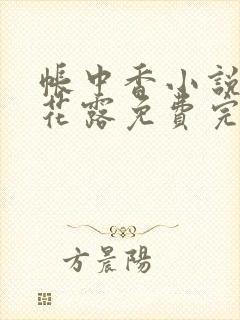 帳中香小說
花露免費完
方晨陽